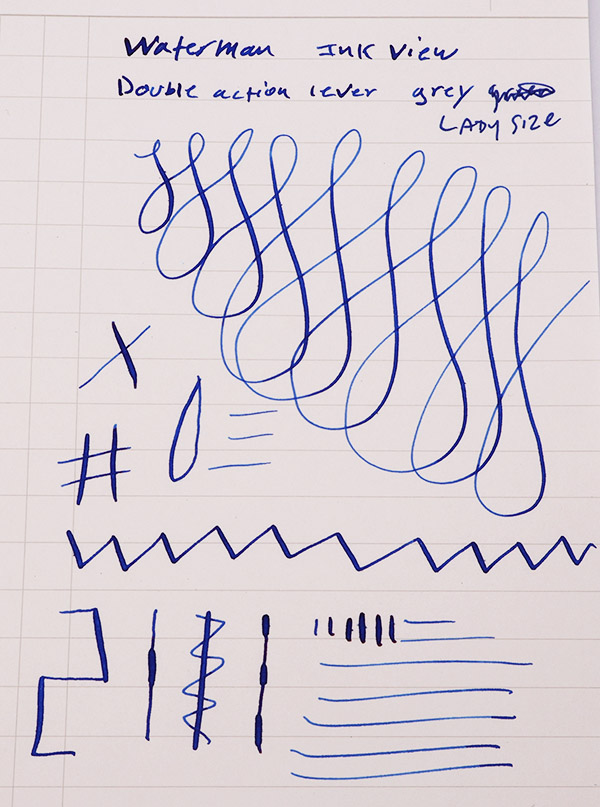 Waterman Ink View
Double action lever grey
LADY SIZE